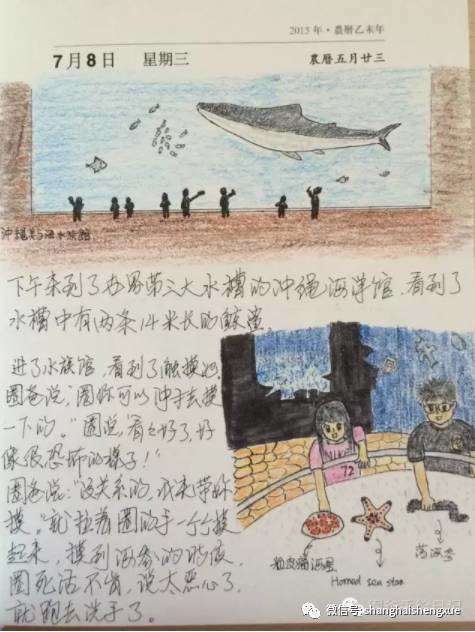 2015 年·農曆乙未年
7月8日 星期三 農曆五月廿三
沖繩美ら海水族館
下午来到了世界第三大水槽的冲绳海洋馆,看到了
水槽中有两条14米长的鲸鲨.
进了水族馆,看到了触摸池
圈爸说:"圈你可以伸手去摸
一下的。"圈说,"看看好了,好
像很恐怖的样子!"
圈爸说:"没关系的,我来带你
摸。"就拉着圈的手一个个摸
起来,摸到海参的时候,
圈死活不肯,说太恶心了,
就跑去洗手了。
72
粒皮瘤海星
Horned sea star
海参
微信号: shanghaishengxue